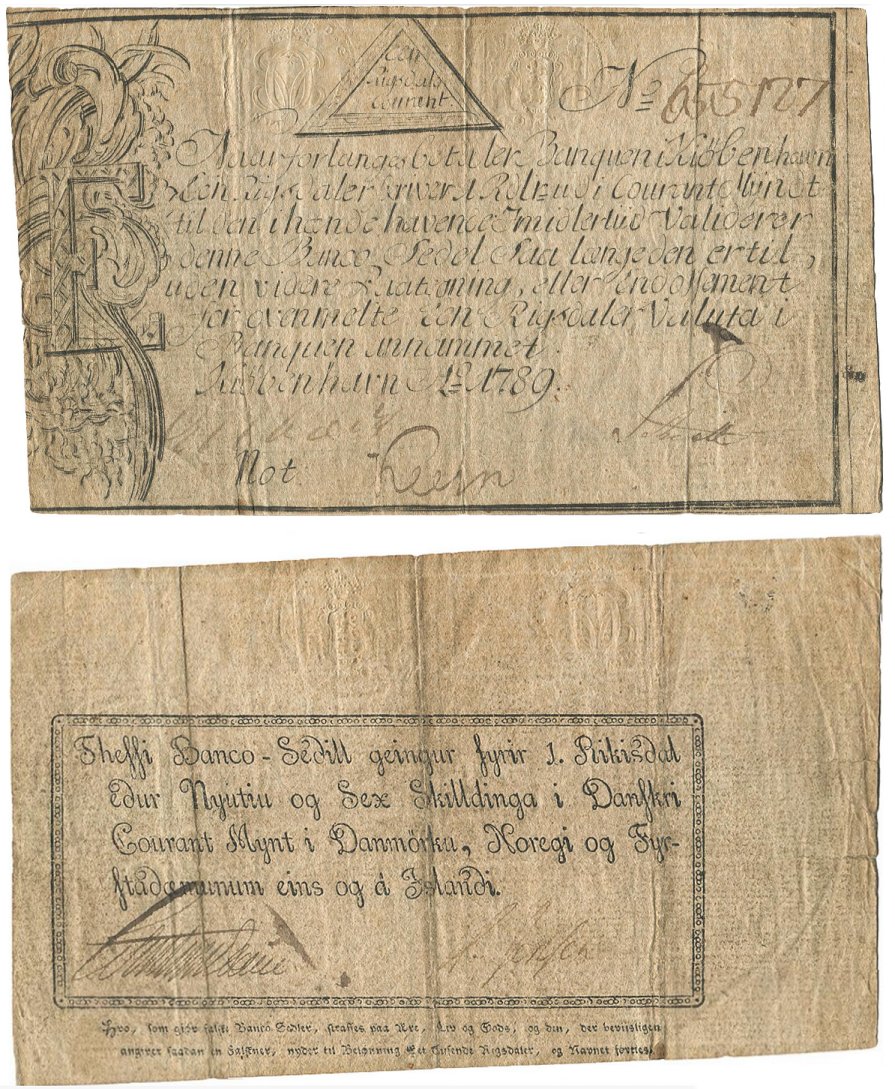 Een
Rigsdaler
Courent.
No 655127
Naar forlanges betaler Banquen i Kiøbenhavn
Een Rigsdaler skriver 1 Rdlr: ud i Courant Mÿndt
til den ihænde havende Imidlertiid Validerer
denne Banco Sedel saa længe den er til,
uden videre Paategning, eller Endossement
for ovenmelte Een Rigsdaler Valuta i
Banquen annammet.
Kiøbenhavn Ao 1789.
Not.
Thessi Banco-Sedill geingur fyrir 1. Rikisdal
edur Nyutiu og Sex Skilldinga i Danskri
Courant Mynt i Danmörku, Noregi og Fyr-
stadæmunum eins og á Islandi.
Hvo, som giør falske Banco-Sedler, straffes paa Ære, Liv og Gods, og den, der beviisligen
angiver saadan en Falskner, nyder til Belønning Eet Tusende Rigsdaler, og Navnet forties.